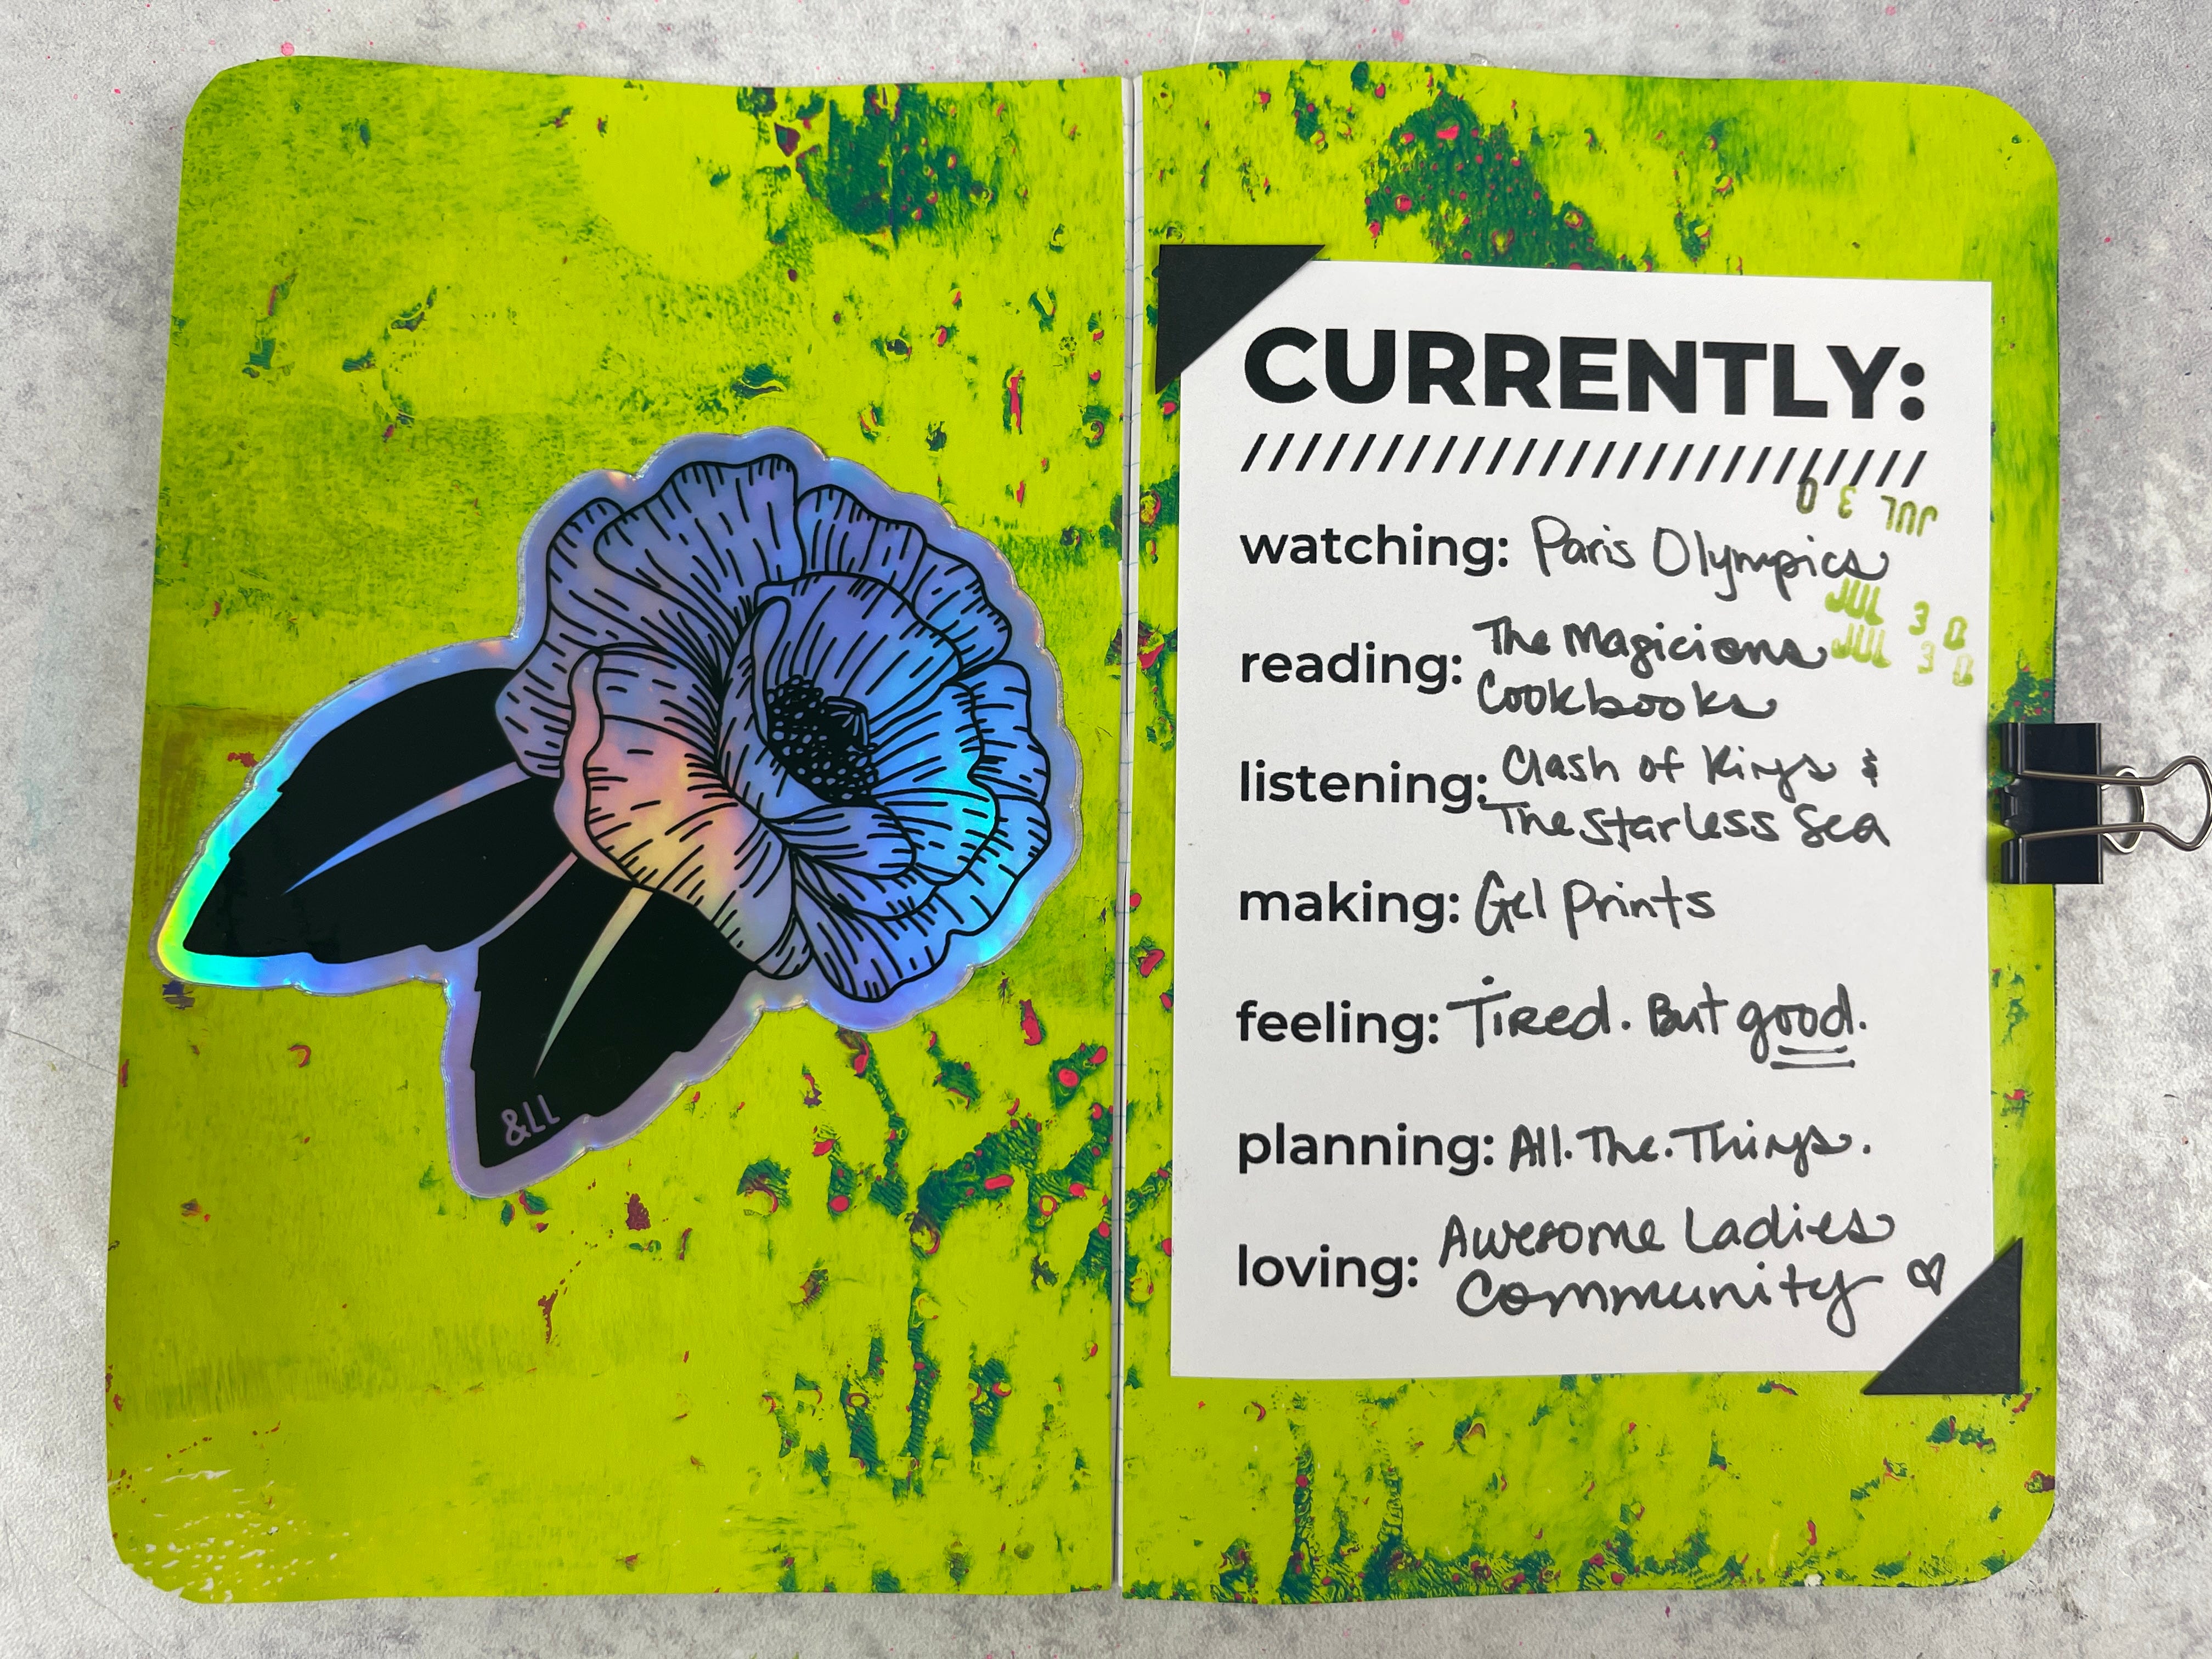 &LL
CURRENTLY:
////////////////////////////
JUL 30
watching: Paris Olympics
JUL 30
JUL 30
reading: The Magicians
Cookbooks
listening: Clash of Kings &
The Starless Sea
making: Gel Prints
feeling: Tired. But good.
planning: All.The.Things.
loving: Awesome Ladies
Community ♡